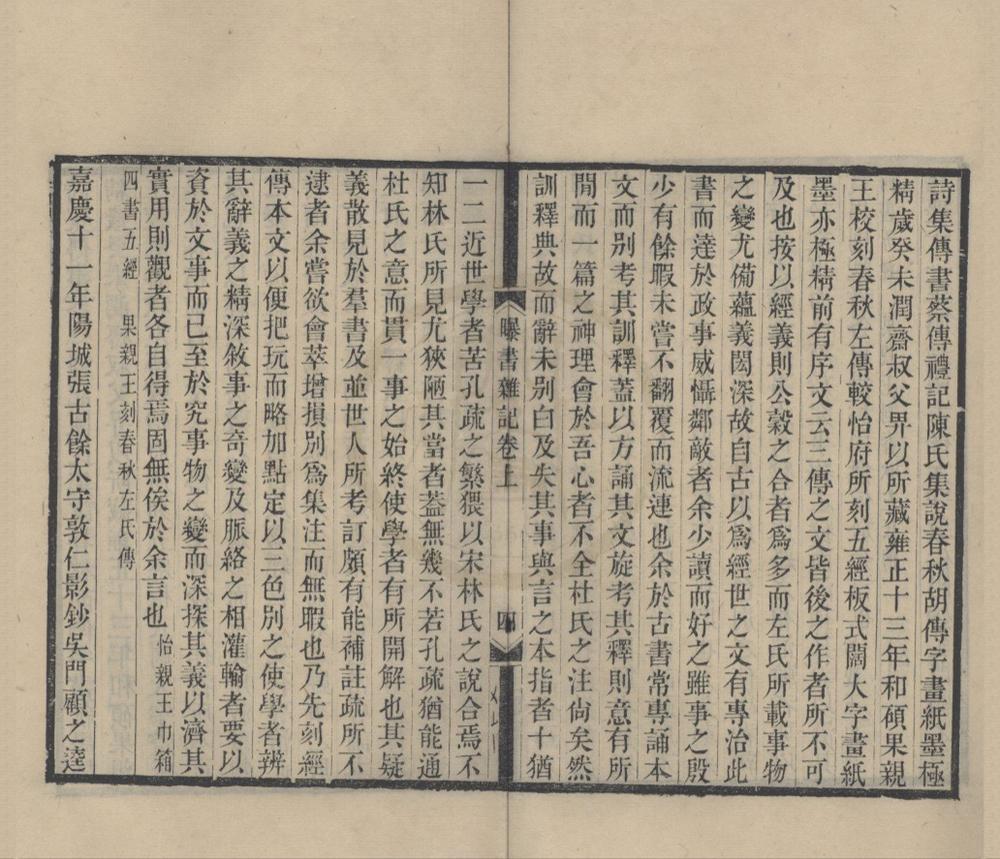 詩集傳書蔡傳禮記陳氏集說春秋胡傳字畫紙墨極
精歲癸未潤齋叔父畀以所藏雍正十三年和碩果親
王校刻春秋左傳較怡府所刻五經板式闊大字畫紙
墨亦極精前有序文云三傳之文皆後之作者所不可
及也按以經義則公穀之合者爲多而左氏所載事物
之變尤備蘊義閎深故自古以爲經世之文有專治此
書而達於政事威懾鄰敵者余少讀而好之雖事之殷
少有餘暇未嘗不翻覆而流連也余於古書常專誦本
文而别考其訓釋蓋以方誦其文旋考其釋則意有所
閒而一篇之神理會於吾心者不全杜氏之注尙矣然
訓釋典故而辭未别白及失其事與言之本指者十猶
曝書雜記卷上
四
一二近世學者苦孔疏之繁猥以宋林氏之說合焉不
知林氏所見尤狹陋其當者蓋無幾不若孔疏猶能通
杜氏之意而貫一事之始終使學者有所開解也其疑
義散見於羣書及並世人所考訂頗有能補註疏所不
逮者余嘗欲會萃增損別爲集注而無暇也乃先刻經
傳本文以便把玩而略加點定以三色別之使學者辨
其辭義之精深敘事之奇變及脈絡之相灌輸者要以
資於文事而已至於究事物之變而深探其義以濟其
實用則觀者各自得焉固無俟於余言也 怡親王巾箱
四書五經 果親王刻春秋左氏傳
嘉慶十一年陽城張古餘太守敦仁影鈔吳門顧之逵